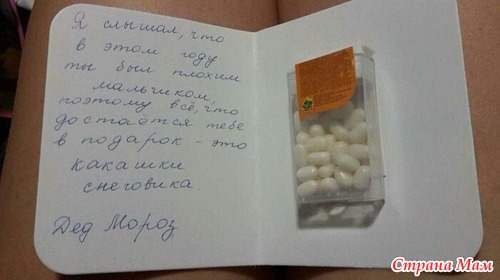 Я слышал, что
в этом году
ты был плохим
мальчиком
поэтому всё, что
достаётся тебе
в подарок - это
какашки
снеговика.
Дед Мороз
Страна Мам